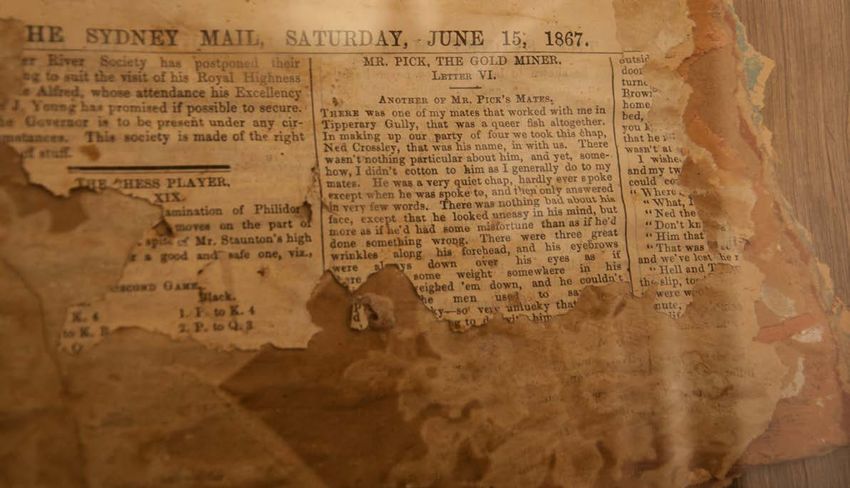 HE SYDNEY MAIL, SATURDAY, JUNE 15, 1867.
er River Society has postponed their
ng to suit the visit of his Royal Highness
e Alfred, whose attendance his Excellency
J. Young has promised if possible to secure.
he Governor is to be present under any cir-
mstances. This society is made of the right
of stuff.
THE CHESS PLAYER.
XIX.
amination of Philidor
moves on the part of
spite of Mr. Staunton's high
r a good and safe one, viz.,
SECOND GAME.
Black.
K. 4 1. P. to K. 4
to K. B 2. P. to Q. 3
MR. PICK, THE GOLD MINER.
LETTER VI.
ANOTHER OF MR. PICK'S MATES.
THERE was one of my mates that worked with me in
Tipperary Gully, that was a queer fish altogether.
In making up our party of four we took this chap,
Ned Crossley, that was his name, in with us. There
wasn't nothing particular about him, and yet, some-
how, I didn't cotton to him as I generally do to my
mates. He was a very quiet chap, hardly ever spoke
except when he was spoke to, and then only answered
in very few words. There was nothing bad about his
face, except that he looked uneasy in his mind, but
more as if he'd had some misfortune than as if he'd
done something wrong. There were three great
wrinkles along his forehead, and his eyebrows
were always down over his eyes as if
there some weight somewhere in his
weighed 'em down, and he couldn't
he men used to sa
ky—so very unlucky that
g to d with him
outsid
door
turne
Brow
home
bed,
you k
that he
wasn't at
I wishe
and my tw
could co
"Where
"What, I
"Ned the
"Don't kn
"Him that
"That was
and we've lost the r
"Hell and T
the slip, too
were w
nute,